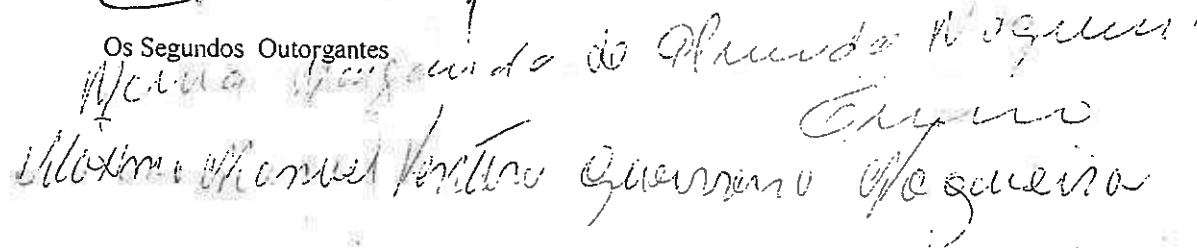 Os Segundos Outorgantes
Maria Margarida de Almeida Nogueira
Máximo Manuel Ventura Guerreiro Nogueira